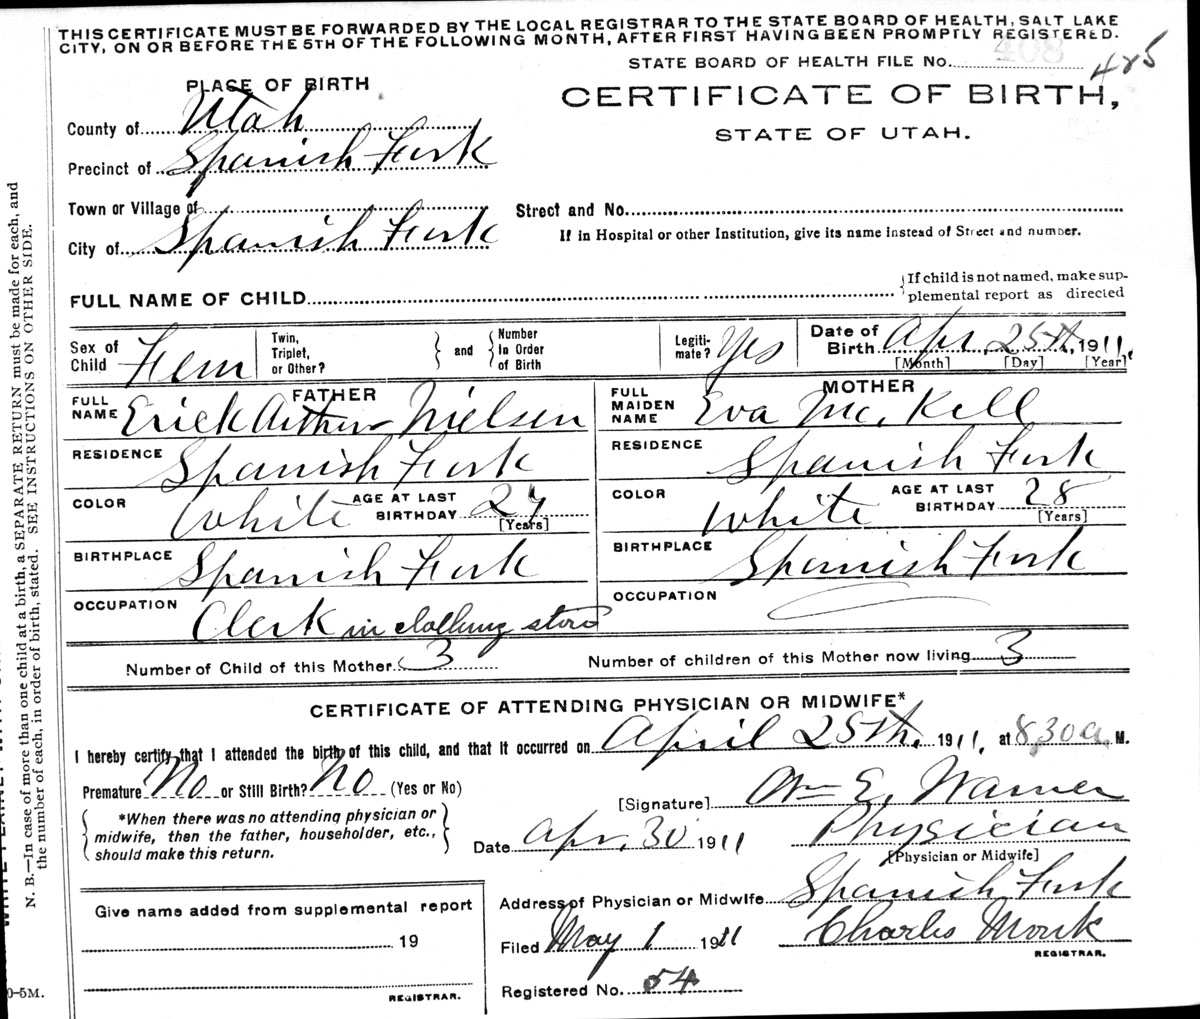 THIS CERTIFICATE MUST BE FORWARDED BY THE LOCAL REGISTRAR TO THE STATE BOARD OF HEALTH, SALT LAKE
CITY, ON OR BEFORE THE 5TH OF THE FOLLOWING MONTH, AFTER FIRST HAVING BEEN PROMPTLY REGISTERED.
STATE BOARD OF HEALTH FILE No. 408 485
PLACE OF BIRTH
CERTIFICATE OF BIRTH,
STATE OF UTAH.
County of Utah
Precinct of Spanish Fork
Town or Village of
Street and No.
City of Spanish Fork
If in Hospital or other Institution, give its name instead of Street and number.
FULL NAME OF CHILD
If child is not named, make sup-
plemental report as directed
Sex of Child Fem
Twin, Triplet, or Other?
and
Number In Order of Birth
Legiti-mate? Yes
Date of Birth Apr 25th, 1911,
[Month] [Day] [Year]
FATHER
MOTHER
FULL NAME Erick Arthur Nielsen
FULL MAIDEN NAME Eva Mc. Kell
RESIDENCE Spanish Fork
RESIDENCE Spanish Fork
COLOR White AGE AT LAST BIRTHDAY 27 [Years]
COLOR White AGE AT LAST BIRTHDAY 28 [Years]
BIRTHPLACE Spanish Fork
BIRTHPLACE Spanish Fork
OCCUPATION Clerk in clothing store
OCCUPATION
Number of Child of this Mother 3
Number of children of this Mother now living 3
CERTIFICATE OF ATTENDING PHYSICIAN OR MIDWIFE*
I hereby certify that I attended the birth of this child, and that it occurred on April 25th, 1911, at 8,30 a. M.
Premature No or Still Birth? No (Yes or No)
[Signature] Wm E. Warner
*When there was no attending physician or
midwife, then the father, householder, etc.,
should make this return.
Date Apr, 30 1911
Physician
[Physician or Midwife]
Address of Physician or Midwife Spanish Fork
Give name added from supplemental report
19
REGISTRAR.
Filed May 1 1911 Charles Monk
REGISTRAR.
Registered No. 54
N. B.—In case of more than one child at a birth, a SEPARATE RETURN must be made for each, and
the number of each, in order of birth, stated. SEE INSTRUCTIONS ON OTHER SIDE.
0-5M.